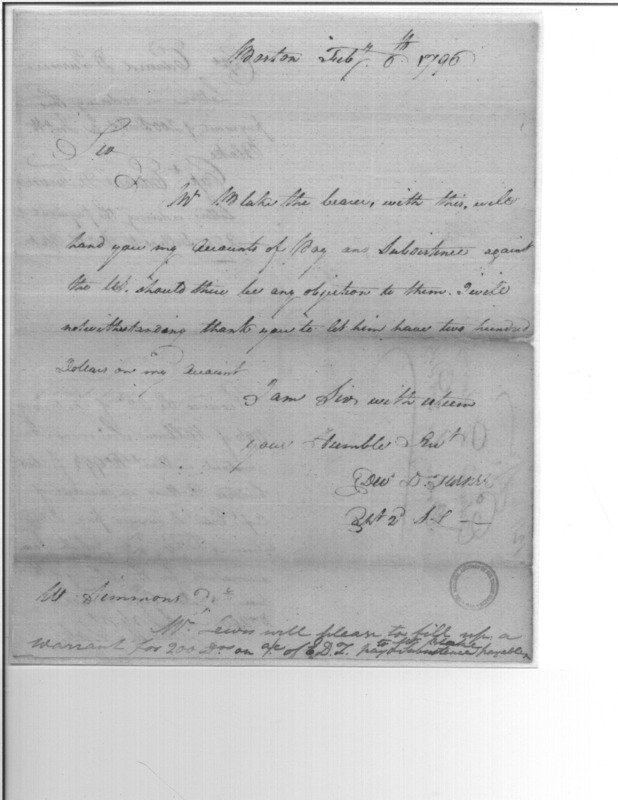 Boston Feby. 6th 1796
Sir
Mr Blake the bearer, with this, will
hand you my accounts of Pay and Subsistence against
the US. should there be any objection to them. I will
notwithstanding thank you to let him have two hundred
Dollars on my account
I am Sir, with esteem
your Humble Sert
Edwd D. Turner
Capt 2d S-L
W Simmons
Mr. Lewis will please to fill up a
warrant for 200 Drs on a/c of E.D.T. pay & subsistence payable
to Mr Blake